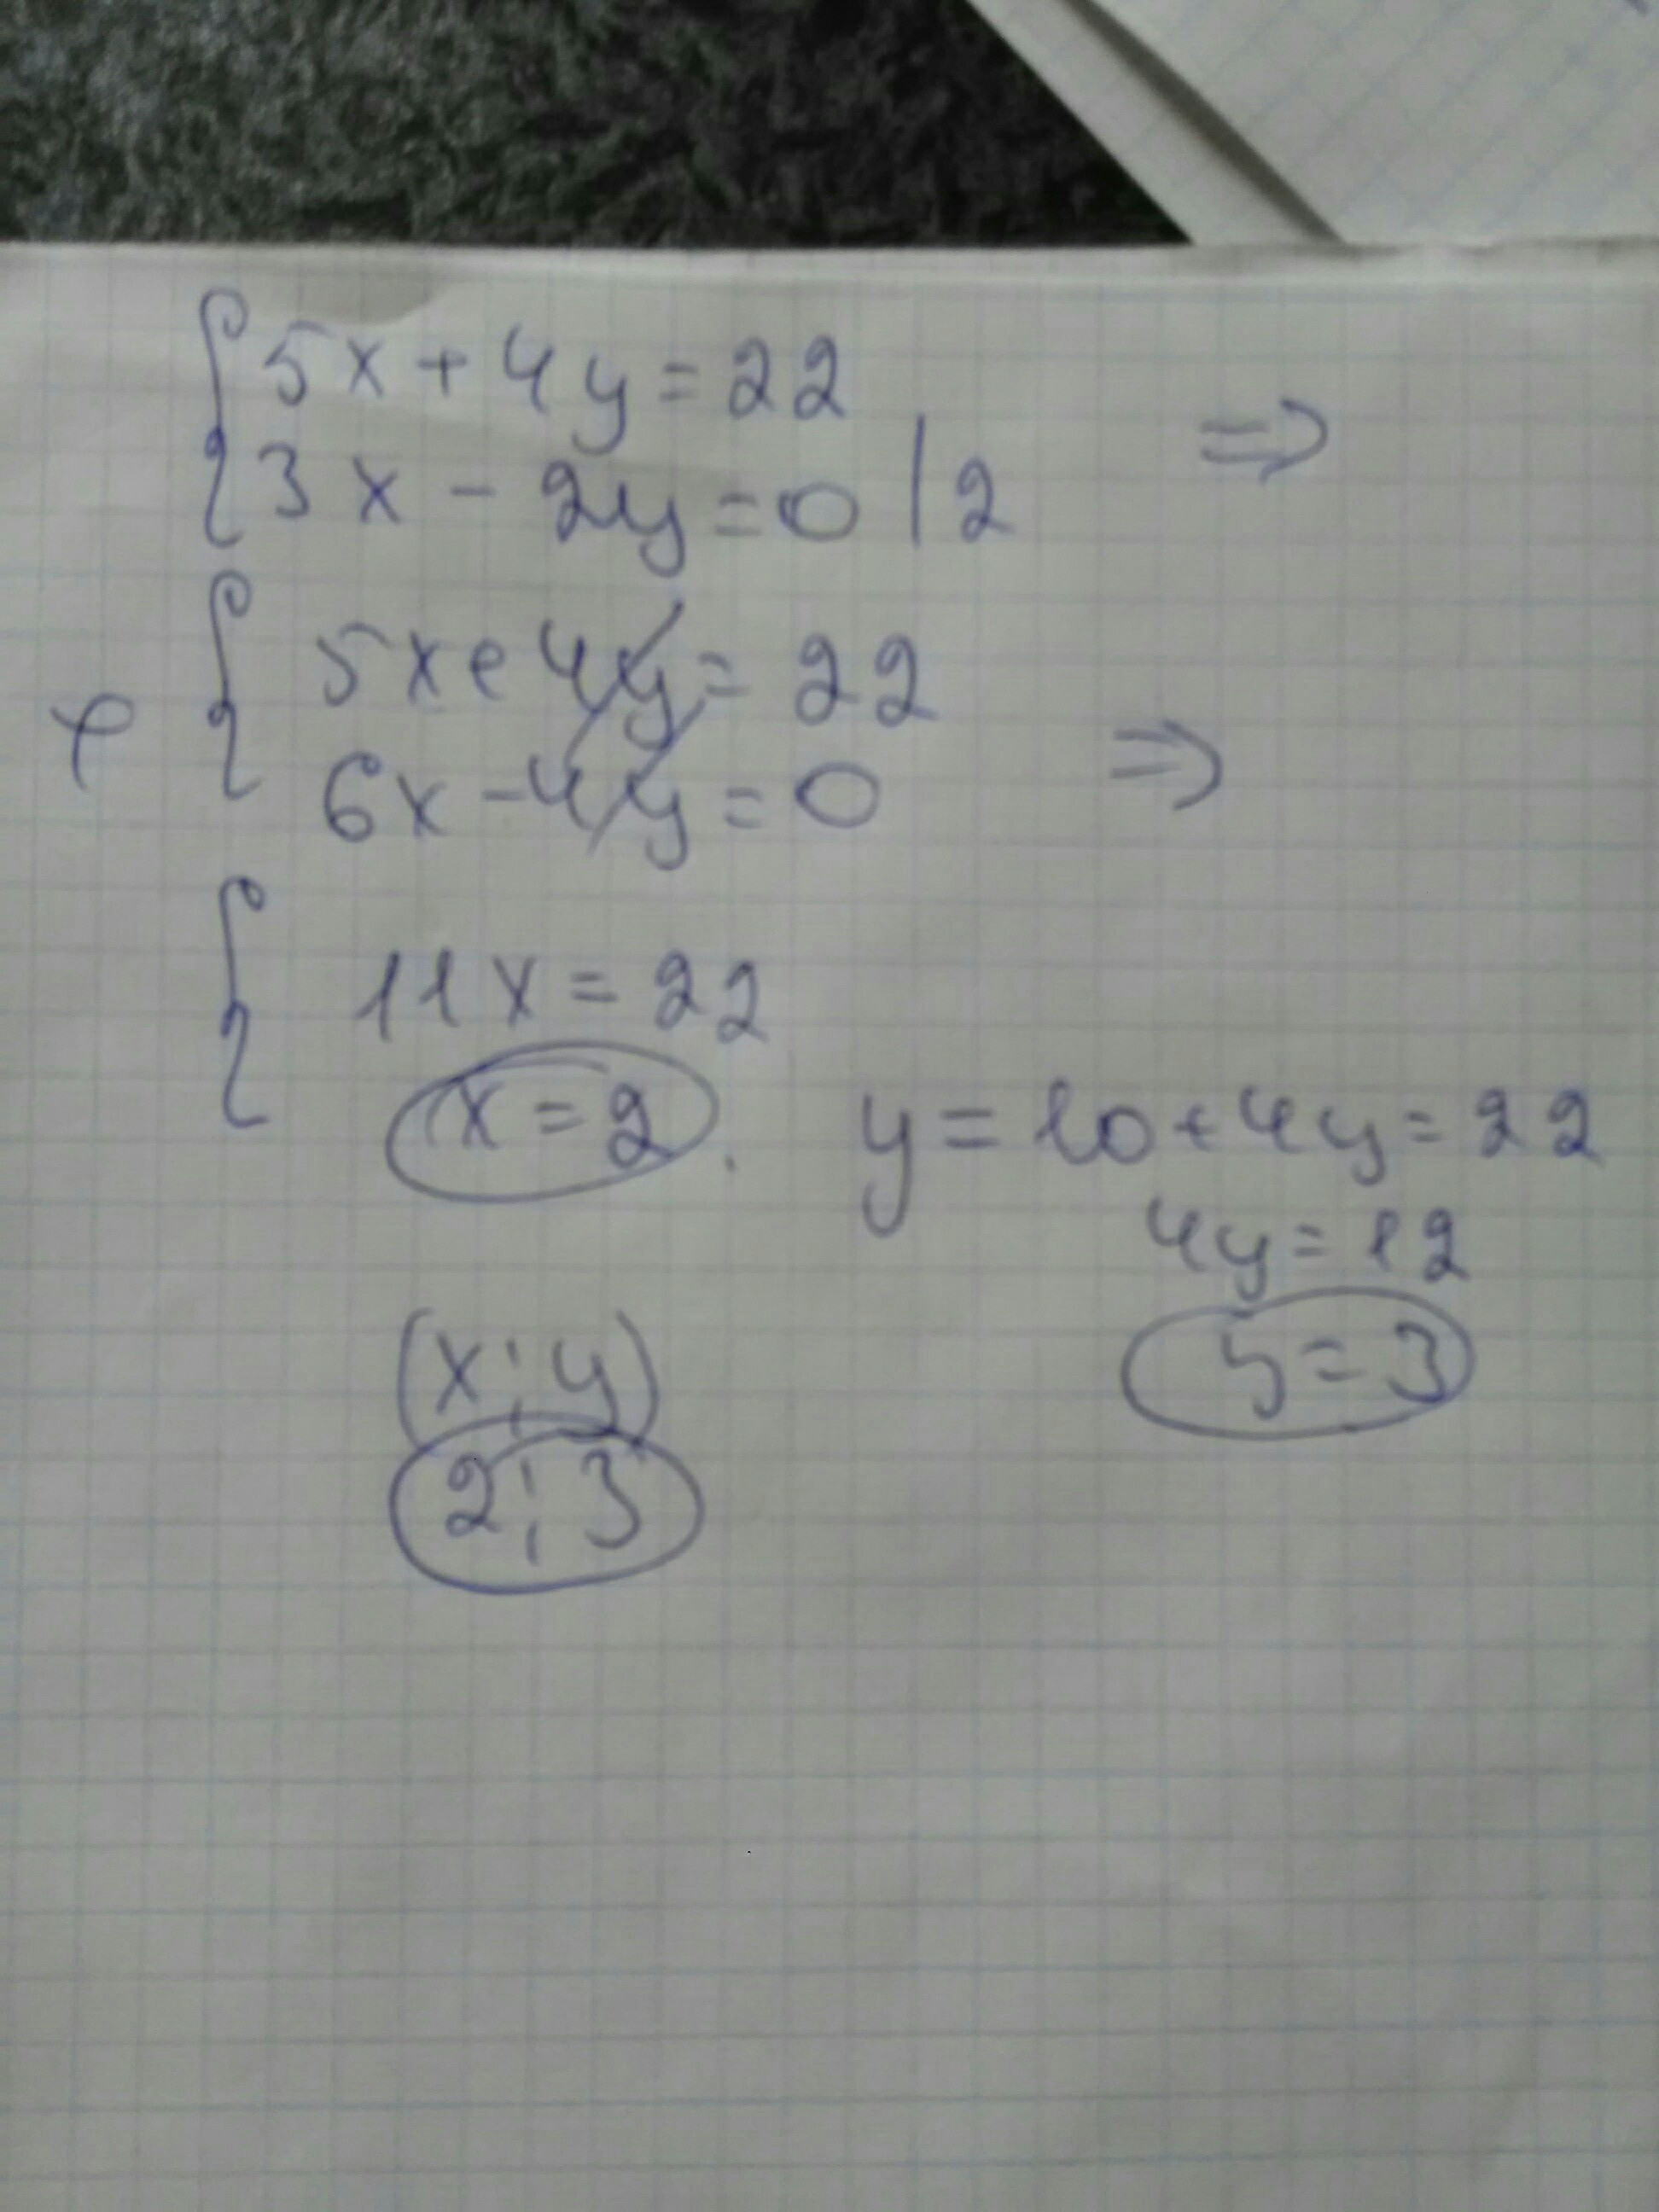 5x + 4y = 22
3x - 2y = 0 | 2 ⇒
5x + 4y = 22
+
6x - 4y = 0 ⇒
11x = 22
x = 2. y = 10 + 4y = 22
4y = 12
y = 3
(x; y)
2; 3